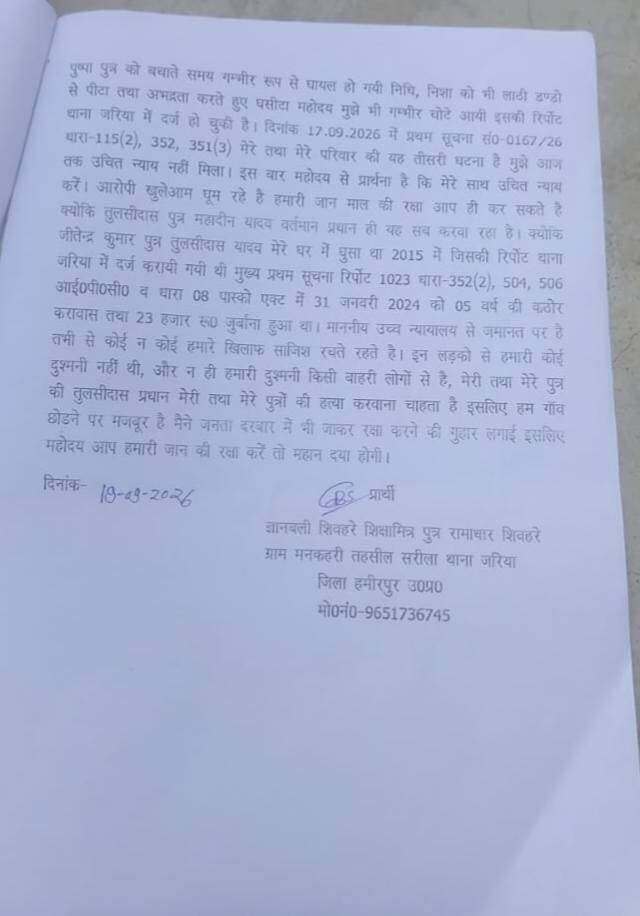 पुष्पा पुत्र को बचाते समय गम्भीर रूप से घायल हो गयी निधि, निशा को भी लाठी डण्डो
से पीटा तथा अभद्रता करते हुए घसीटा महोदय मुझे भी गम्भीर चोटे आयी इसकी रिर्पोट
थाना जरिया में दर्ज हो चुकी है। दिनांक 17.09.2026 में प्रथम सूचना सं0-0167/26
धारा-115(2), 352, 351(3) मेरे तथा मेरे परिवार की यह तीसरी घटना है मुझे आज
तक उचित न्याय नहीं मिला। इस बार महोदय से प्रार्थना है कि मेरे साथ उचित न्याय
करें। आरोपी खुलेआम घूम रहे है हमारी जान माल की रक्षा आप ही कर सकते है
क्योंकि तुलसीदास पुत्र महादीन यादव वर्तमान प्रधान ही यह सब करवा रहा है। क्योकि
जीतेन्द्र कुमार पुत्र तुलसीदास यादव मेरे घर में घुसा था 2015 में जिसकी रिर्पोट थाना
जरिया में दर्ज करायी गयी थी मुख्य प्रथम सूचना रिर्पोट 1023 धारा-352(2), 504, 506
आई0पी0सी0 व धारा 08 पास्को एक्ट में 31 जनवरी 2024 को 05 वर्ष की कठोर
करावास तथा 23 हजार रू0 जुर्बाना हुआ था। माननीय उच्च न्यायालय से जमानत पर है
तभी से कोई न कोई हमारे खिलाफ साजिश रचते रहते है। इन लड़को से हमारी कोई
दुश्मनी नहीं थी, और न ही हमारी दुश्मनी किसी बाहरी लोगों से है, मेरी तथा मेरे पुत्र
की तुलसीदास प्रधान मेरी तथा मेरे पुत्रों की हत्या करवाना चाहता है इसलिए हम गॉव
छोडने पर मजबूर है मैने जनता दरबार में भी जाकर रक्षा करने की गुहार लगाई इसलिए
महोदय आप हमारी जान की रक्षा करें तो महान दया होगी।
दिनांक- 19-09-2026
प्रार्थी
ज्ञानबली शिवहरे शिक्षामित्र पुत्र रामाधार शिवहरे
ग्राम मनकहरी तहसील सरीला थाना जरिया
जिला हमीरपुर उ0प्र0
मो0नं0-9651736745